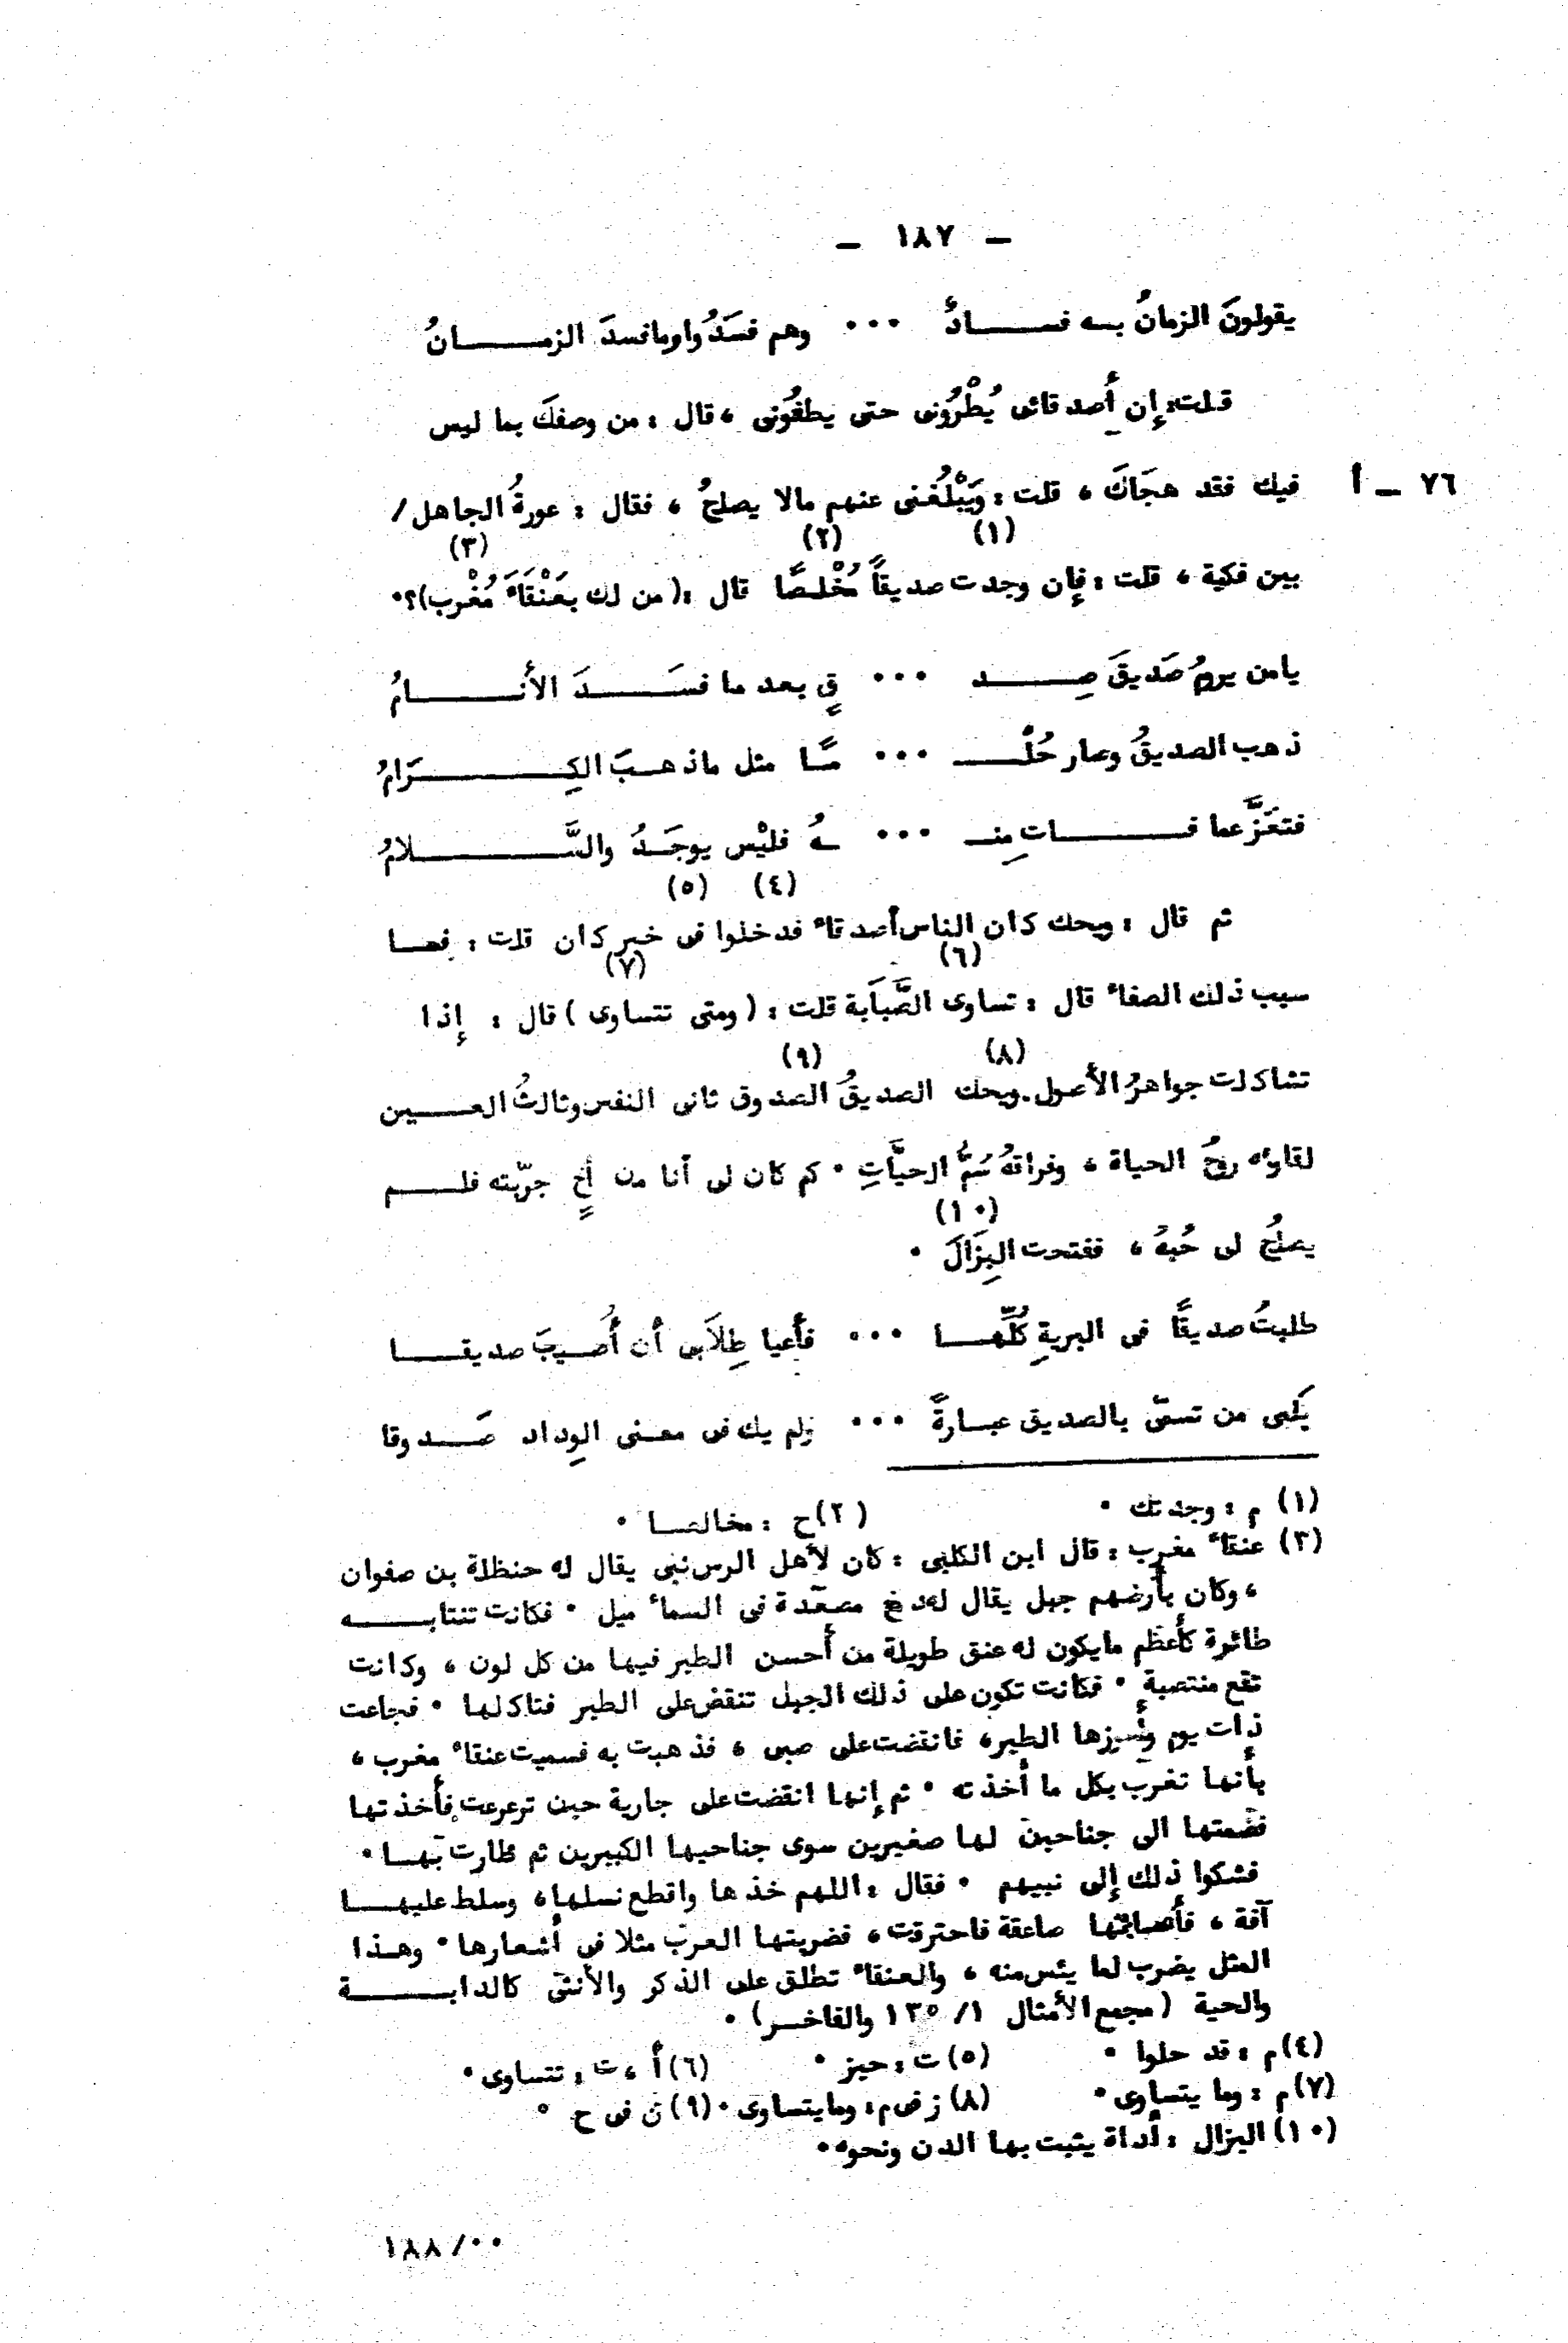 — ١٨٧ —
يقولونَ الزمانُ بـه فســـادٌ ... وهم فسَدُوا وما فسدَ الزمــــانُ
قلت: إن أصدقائى يُطْرُونى حتى يطغُونى ، قال : من وصفكَ بما ليس
٧٦ ــ أ فيك فقد هجَاكَ ، قلت : وَيَبْلُغنى عنهم مالا يصلحُ ، فقال : عورةُ الجاهل /
(١) (٢) (٣)
بين فكية ، قلت : فإن وجدت صديقاً مُخْلصًا قال :( من لك بعَنْقَاَء مُغْرب)؟.
يامن يرومُ صَديقَ صِــــد ... قٍ بعد ما فسَـــــدَ الأنـــــامُ
ذهب الصديقُ وصار حُلْـــــ ... مًــا مثل ماذهــبَ الكِــــــرَامُ
فتعَزَّ عما فـــــات مِنـــ ... ـهُ فليْس يوجَــدُ والسَّـــــلامُ
(٤) (٥)
ثم قال : ويحك كان الناس أصدقاء فدخلوا فى خبر كان قلت : فمــا
(٦) (٧)
سبب ذلك الصفاء قال : تساوى الصَّبَابة قلت : ( ومتى تتساوى ) قال : إذا
(٨) (٩)
تشاكلت جواهرُ الأصول. ويحك الصديقُ الصدوق ثانى النفس وثالثُ العـــين
لقاؤه روحُ الحياة ، وفراقهُ سَمُّ الحيَّاتِ . كم كان لى أنا من أخٍ جرّبته فلـــم
(١٠)
يصلحُ لى حُبهُ ، ففتحت البِزَالَ .
طلبتُ صديقًا فى البريةِ كُلِّهـــا ... فأعيا طِلَابى أن أُصــيبَ صديقـــا
بَلَى من تسمّى بالصديق عبــارةً ... ولم يك فى معــنى الوِداد صَـــدوقا
(١) م : وجدتك . (٢) ح : مخالصــا .
(٣) عنقاء مغرب : قال ابن الكلبى : كان لأهل الرس نبى يقال له حنظلة بن صفوان
، وكان بأرضهم جبل يقال له دمخ مصعّدة فى السماء ميل . فكانت تنتابــــه
طائرة كأعظم مايكون له عنق طويلة من أحسن الطير فيها من كل لون ، وكانت
تقع منتصبة . فكانت تكون على ذلك الجبل تنقض على الطير فتاكلها . فجاعت
ذات يوم وأعوزها الطير ، فانقضت على صبى ، فذهبت به فسميت عنقاء مغرب ،
بأنها تغرب بكل ما أخذته . ثم إنها انقضت على جارية حين ترعرعت فأخذتها
فضمتها الى جناحين لها صغيرين سوى جناحيها الكبيرين ثم طارت بهــا .
فشكوا ذلك إلى نبيهم . فقال : اللهم خذها واقطع نسلها ، وسلط عليهـــا
آفة ، فأصابتها صاعقة فاحترقت ، فضربتها العرب مثلا فى أشعارها . وهــذا
المثل يضرب لما يئس منه ، والعنقاء تطلق على الذكر والأنثى كالدابـــــة
والحية ( مجمع الأمثال ١/ ١٣٥ والفاخــر ) .
(٤) م : قد حلوا . (٥) ت : حيز . (٦) أ ، ت : تتساوى .
(٧) م : وما يتساوى . (٨) ز فى م : ومايتساوى . (٩) ن فى ح .
(١٠) البزال : أداة يثبت بها الدن ونحوه .
١٨٨/٠٠